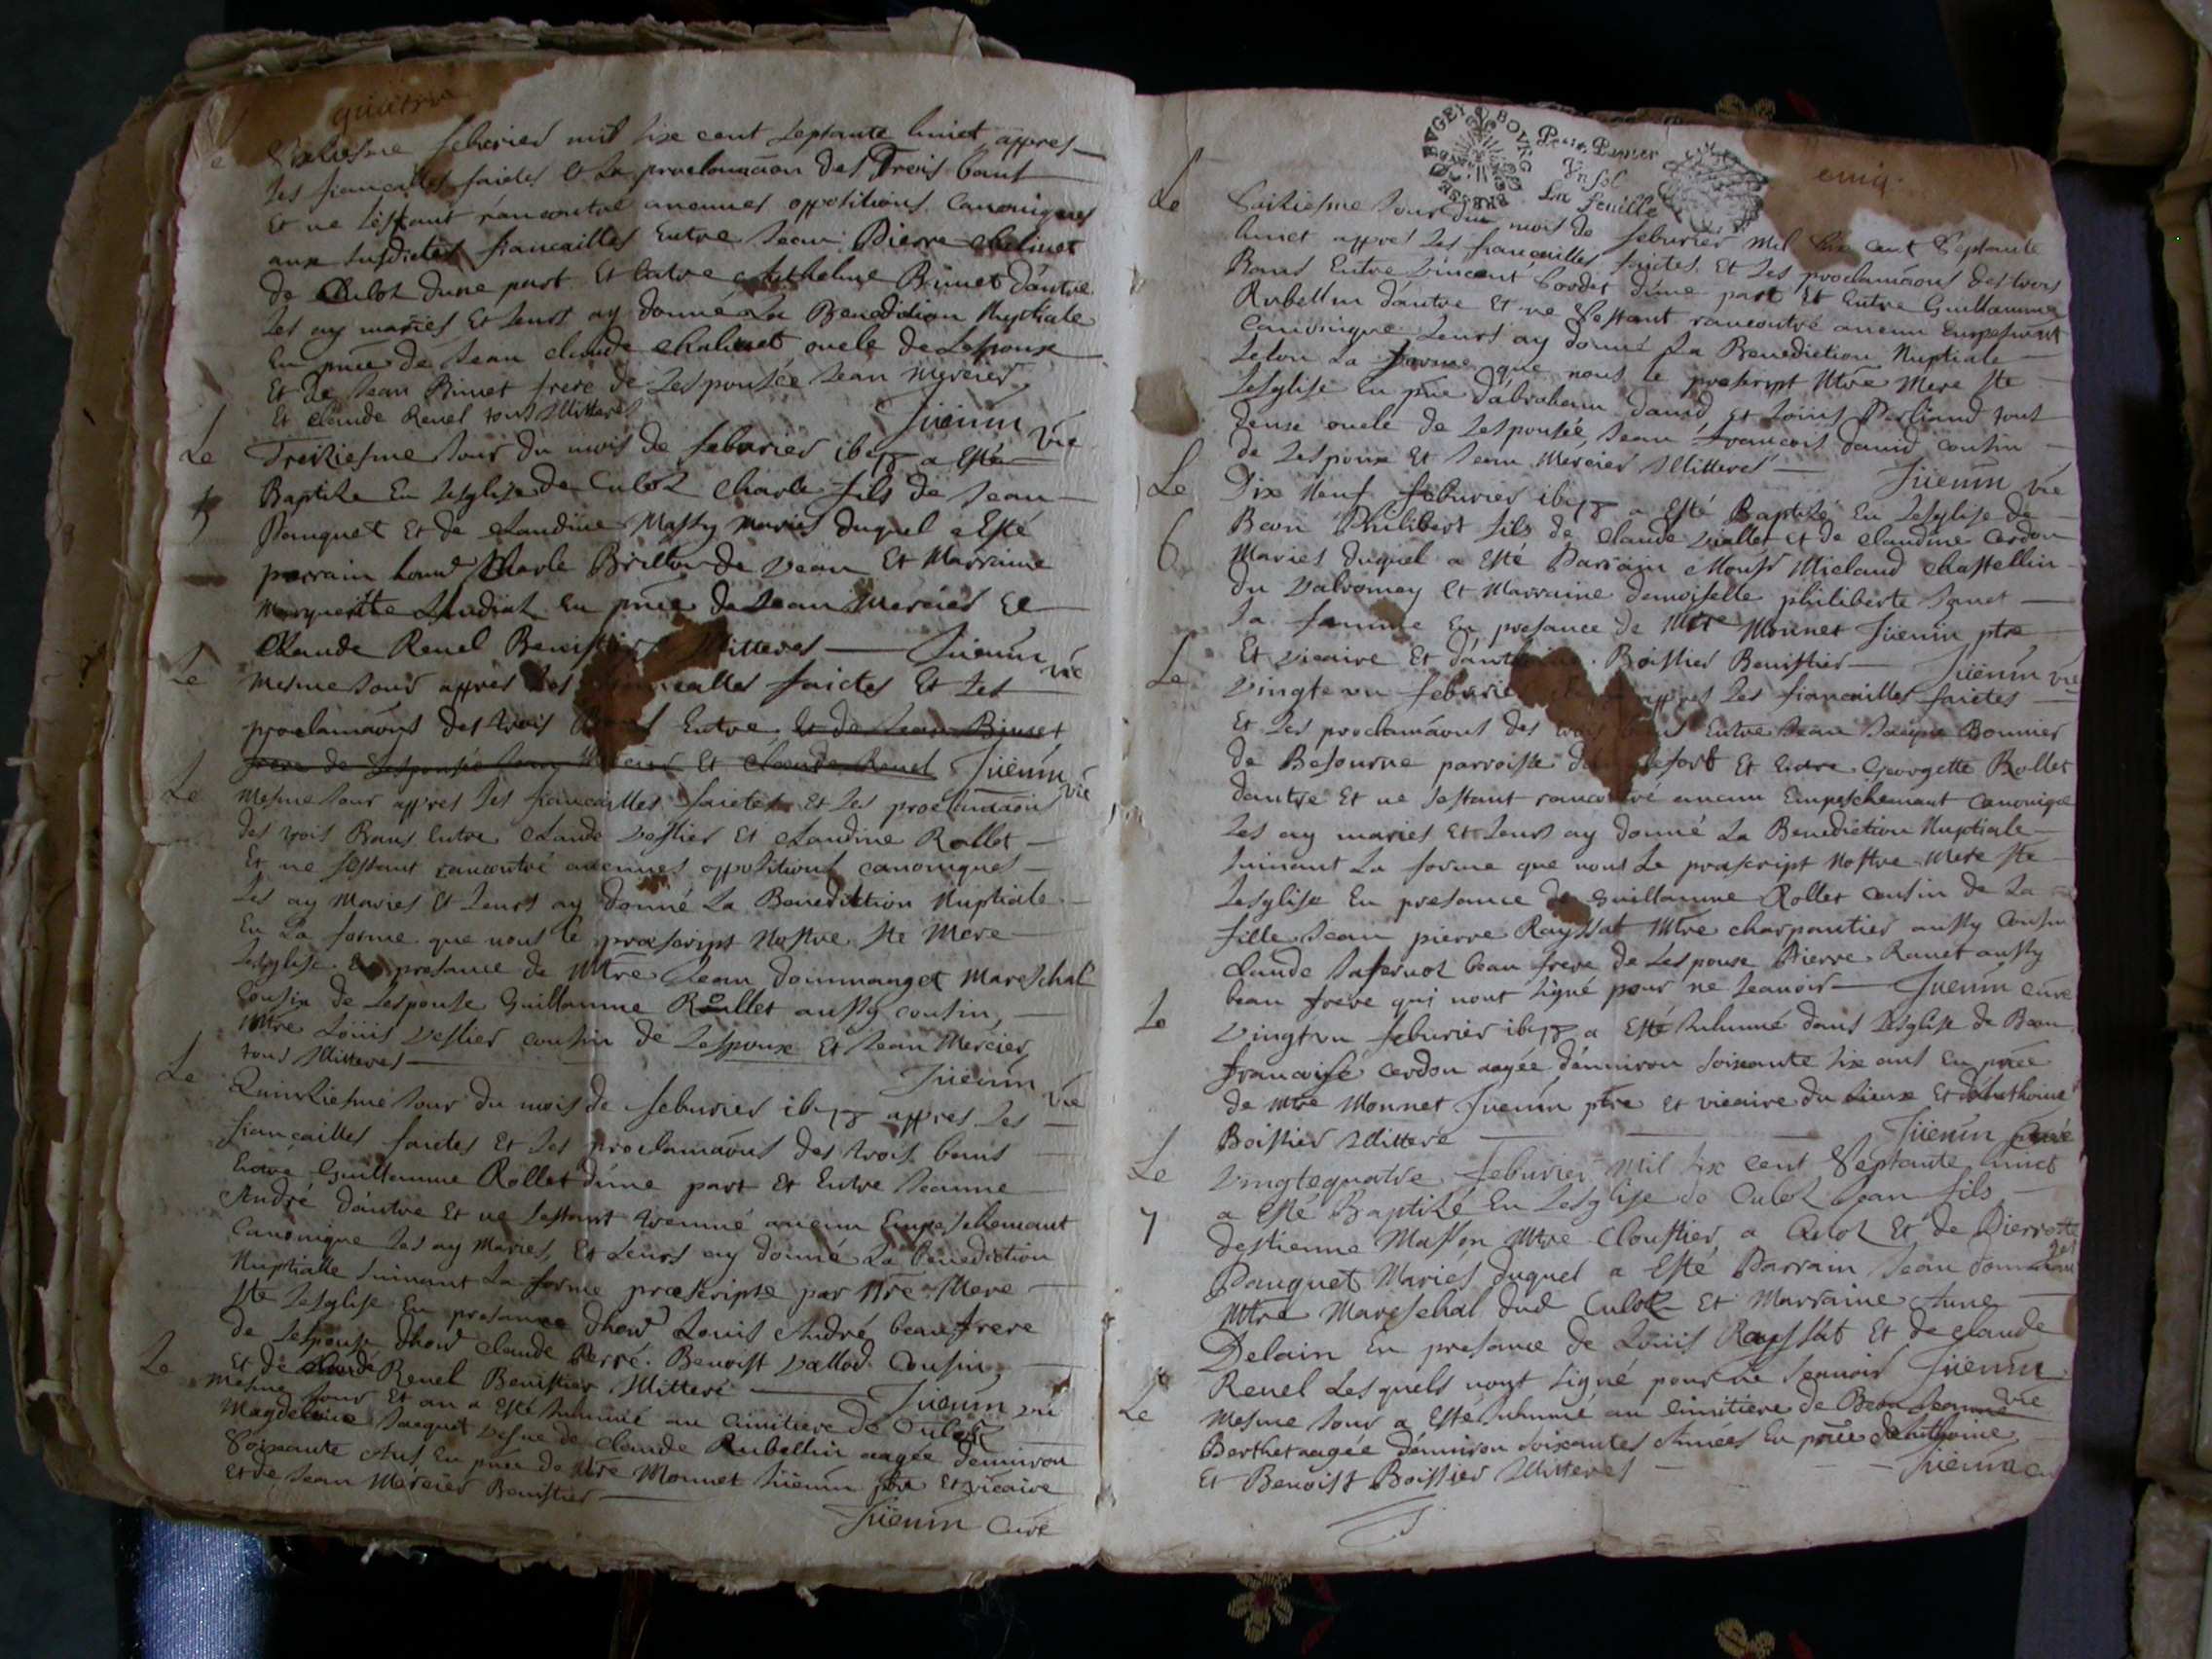 quatre
febvrier mil six cent septante huict appres
les fiancailles faictes et la proclamaõn des Trois bant
Et ne sestant rancontré aucunes oppositions canoniques
aux susdictes fiancailles Entre Jean Pierre
de Culoz dune part Et Entre Anthelme Binet dautre
les ay mariés Et leurs ay donné La Benediction Nuptiale
En pñce de Jean claude Chalinet oncle de Lespoux
Et de Jean Binet frere de Lespousée Jean Mercier
Et Claude Renel tous illitteres
Juenin vic
Le Treiziesme Jour du mois de febvrier a Esté
Baptize En Lesglise de Culoz Charle fils de Jean
5 Pauquet Et de Claudine Massy mariés duquel a Esté
parrain Charle Brillon de Et Marraine
Marguerite En pñce de Jean Mercier Et
Claude Renel illitteres Juenin vic
Le mesme Jour appres les faictes Et les
proclamaõns des trois Entre Et de Jean Binet
frere de Lespousée Jean Et Claude Renel Juenin vic
Le mesme Jour appres les fiancailles faictes Et les proclamaõns
des trois Bans Entre Claude Vestier Et Claudine Rollet
Et ne sestant rancontré aucunes oppositions canoniques
les ay Mariés Et leurs ay donné La Benediction Nuptiale
En La forme que nous le præscript Nostre Ste Mere
Lesglise En presance de Mtre Jean dommanget Mareschal
Cousin de Lespouse Guillaume Rollet aussy cousin,
Mtre Loüis Vestier cousin de Lespoux Et Jean Mercier
tous illitteres
Juenin vic
Le Quinziesme Jour du mois de febvrier appres les
fiancailles faictes Et les proclamaõns des trois bans
Entre Guillaume Rollet dúne part Et Entre Jeanne
André dáutre Et ne sestant treuvé aucun Empeschemant
Canonique les ay Mariés, Et leurs ay donné La benediction
Nuptialle suivant La forme præscripte par Ntre Mere
Ste Lesglise En presance Louis André beau frere
de Lespouse Claude Benoist Vallod Cousin,
Et de Claude Renel illitteré Juenin vic
Le mesme Jour Et an a Esté Inhumé au Cimitiere de Culoz
Magdeleine Jacquet vefve de Claude Rubellin aagée denviron
Soixante Ans En pñce de Mtre Monnet Juenin ptre Et vicaire
Et de Jean Mercier
Juenin Curé
BRESSE BVGEY
Pour Papier
Vn sol
La feuille
cinq
Le Saiziesme Jour du mois de febvrier Mil Six Cent Septante
huict appres les fiancailles faictes Et les proclamaõns des trois
Bans Entre Vincent dúne part Et Entre Guillauma
Rubellin dáutre Et ne sestant rancontré aucun Empeschemant
Canonique Leurs ay donné La Benediction Nuptiale
selon La forme que nous le præscript Ntre Mere Ste
Lesglise En pñce dábraham david Et Loüis tout
deux oncle de Lespousée, Jean francois david cousin
de Lespoux Et Jean Mercier illitteres
Juenin vic
Le Dix Neuf febvrier a Esté Baptizé En Lesglise de
6 Beon Philibert fils de Claude Viallet Et de Claudine Cerdon
Mariés duquel a Esté Parrain Monsr Micland Chastellin
du Valromey Et Marraine demoiselle philiberte
sa famme En presance de Mtre Monnet Juenin ptre
Et vicaire Et Boissier Juenin vic
Le Vingte vn febvrier appres les fiancailles faictes
Et les proclamaõns des Entre Jean Bonnier
de Besourne parroisse Et Entre Georgette Rollet
dautre Et ne sestant aucun Empeschemant Canonique
les ay mariés Et leurs ay donné La Benediction Nuptiale
suivant La forme que nous Le præscript Nostre Mere Ste
Lesglise En presance de Guillaume Rollet cousin de La
fille Jean pierre Rayssat Mtre charpantier aussy Cousin
Claude beau frere de Lespoux Pierre aussy
beau frere qui nont signé pour ne scavoir Juenin curé
Le Vingt vn febvrier a Esté Inhumé dans Lesglise de Beon
francoise Cerdon aagée dénviron soixante six ans En pñce
de Mtre Monnet Juenin ptre Et vicaire du Lieux Et dAnthoine
Boissier illitteré
Juenin Curé
Le Vingtequatre febvrier Mil six cent Septante huict
a Esté Baptizé En Lesglise de Culoz Jean fils
7 destienne Masson Mtre Cloustier a Culoz Et de Pierrotte
Pauquet Mariés, duquel a Esté Parrain Jean dommanget
Mtre Mareschal dud Culoz Et Marraine Anne
Delain En presance de Loüis Rayssat Et de Claude
Renel Lesquels nont signé pour ne scavoir Juenin vic
Le Mesme Jour a Esté Inhumé au Cimitiere de Beon Jeanne
Berthet aagée dénviron soixantes Années En pñce dAnthoine
Et Benoist Boissier illitteres
Juenin